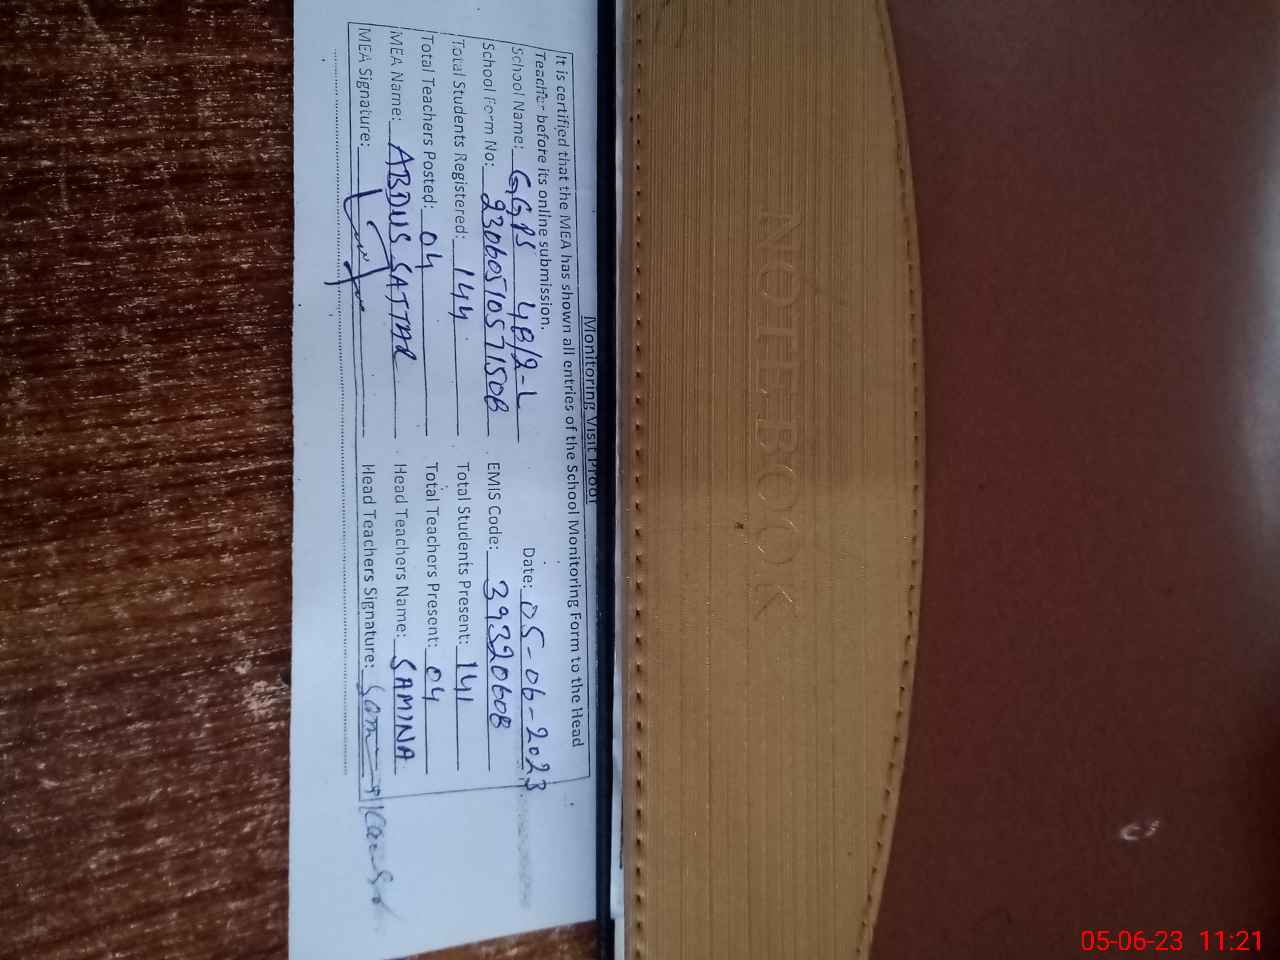 Monitoring Visit Proof
It is certified that the MEA has shown all entries of the School Monitoring Form to the Head
Teacher before its online submission.
School Name: GGPS 4B/2-L Date: 05-06-2023
School Form No: 230605105715OB EMIS Code: 39320608
Total Students Registered: 144 Total Students Present: 141
Total Teachers Posted: 04 Total Teachers Present: 04
MEA Name: ABDUS SATTAR Head Teachers Name: SAMINA
MEA Signature: Head Teachers Signature:
NOTEBOOK
05-06-23 11:21